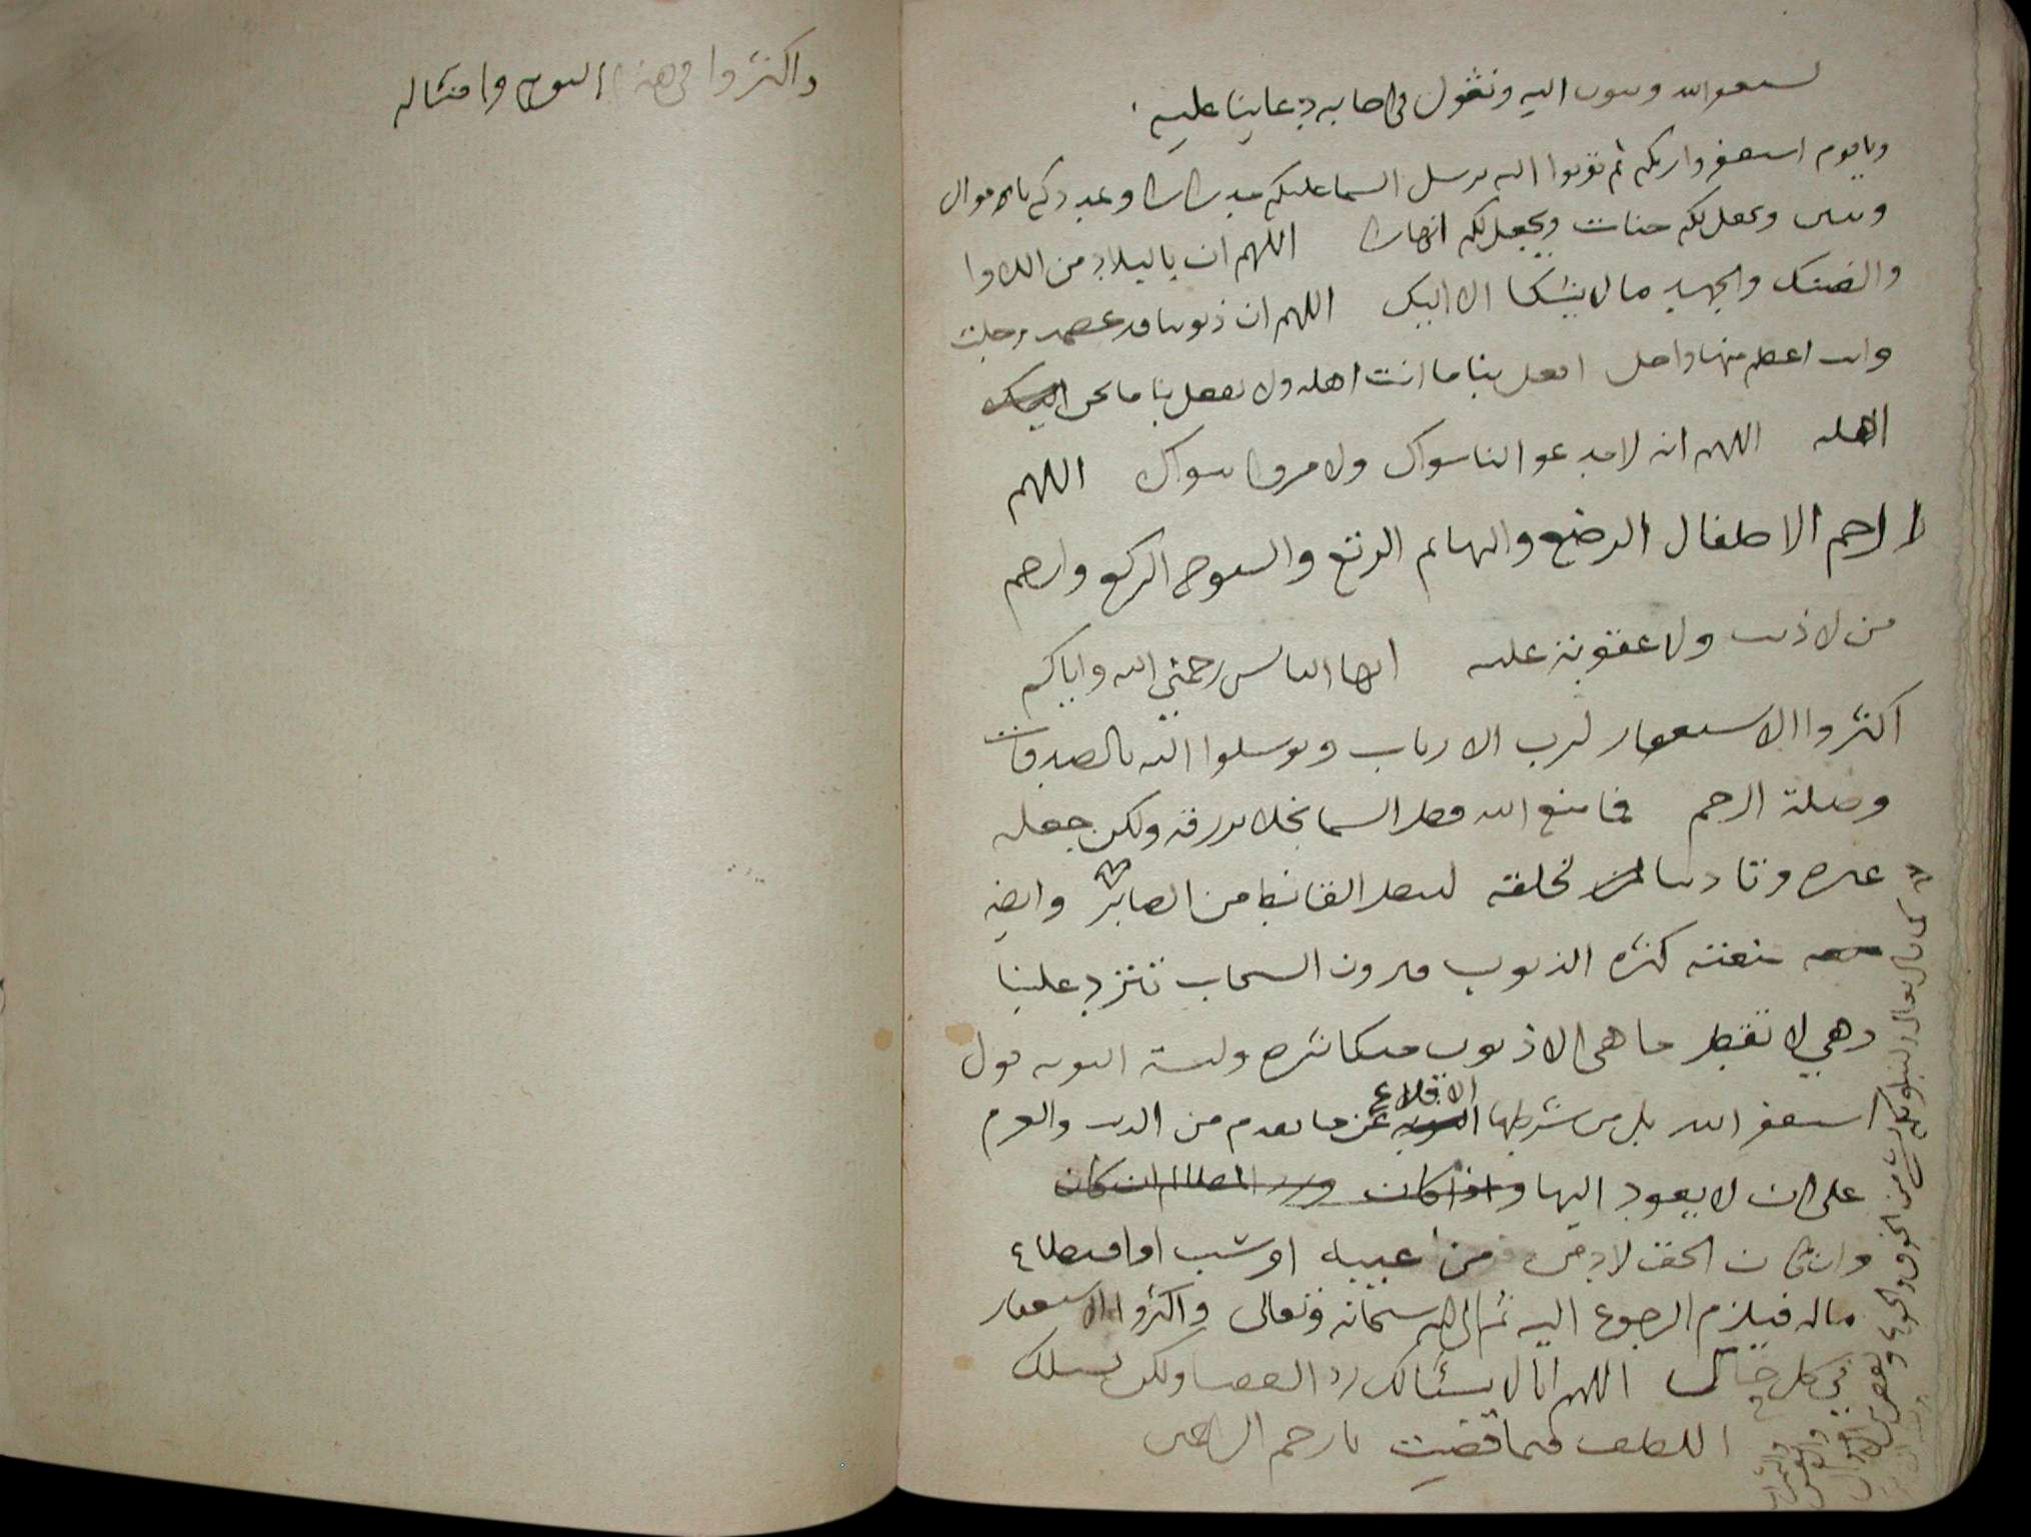 نستغفر الله ونتوب اليه ونقول في اجابه دعائنا عليه
ويا قوم استغفروا ربكم ثم توبوا اليه يرسل السما عليكم مدرارا ويمددكم بالاموال
وبنين ويجعل لكم جنات ويجعل لكم انهارا اللهم ان بالبلاد من اللاوا
والضنك والجهد ما لا يشكا الا اليك اللهم ان ذنوبنا قد عظمت وجلت
وانت اعظم منها واجل افعل بنا ما انت اهله ولا تفعل بنا ما نحن
اهله اللهم انه لا ندعو الها سواك ولا نرجوا سواك اللهم
ارحم الاطفال الرضع والبهائم الرتع والشيوخ الركع وارحم
من لا ذنب ولا عقوبة عليه ايها الناس رحمني الله واياكم
اكثروا الاستغفار لرب الارباب وتوسلوا اليه بالصدقات
وصلة الرحم فما منع الله قطر السما بخلا برزقه ولكن جعله
عبره وتاديبا لخلقه لينظر القانط من الصابر وايضه
نقمته كثره الذنوب فترون السحاب تتردد علينا
وهي لا تقطر ما هي الا ذنوب متكاثره وليست التوبه قول
استغفر الله بل من شرطها الاقلاع عن ما تقدم من الذنب والعزم
على ان لا يعود اليها واذا كان ورد المظالم ان كان
وان كان الحق لادمى من غيبه او شتب او اقتطاع
ماله فيلزم الرجوع اليه ثم الى الله سبحانه وتعالى واكثروا الاستغفار
في كل حال اللهم انا لا نسئالك رد القضا ولكن نسئلك
اللطف فيما قضيت يا رحم الراحمين
كما قال تعالى ولنبلونكم بشي من الخوف والجوع ونقص من الاموال
والانفس والثمرات
واكثروا في هذا اليوم وامثاله